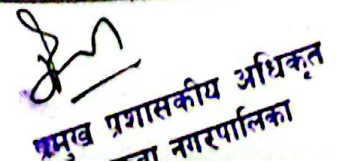 प्रमुख प्रशासकीय अधिकृत
नगरपालिका